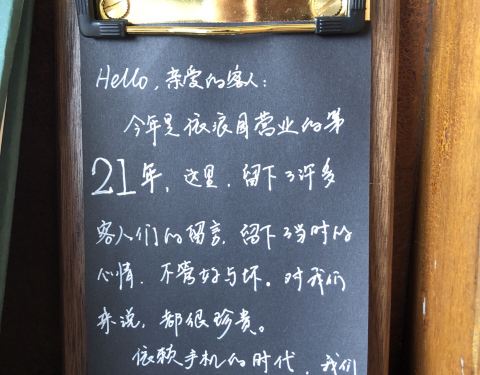 Hello,亲爱的客人:
今年是依浪园营业的第
21年,这里,留下了许多
客人们的留言,留下了当时的
心情,不管好与坏。对我们
来说,都很珍贵。
依赖手机的时代,我们